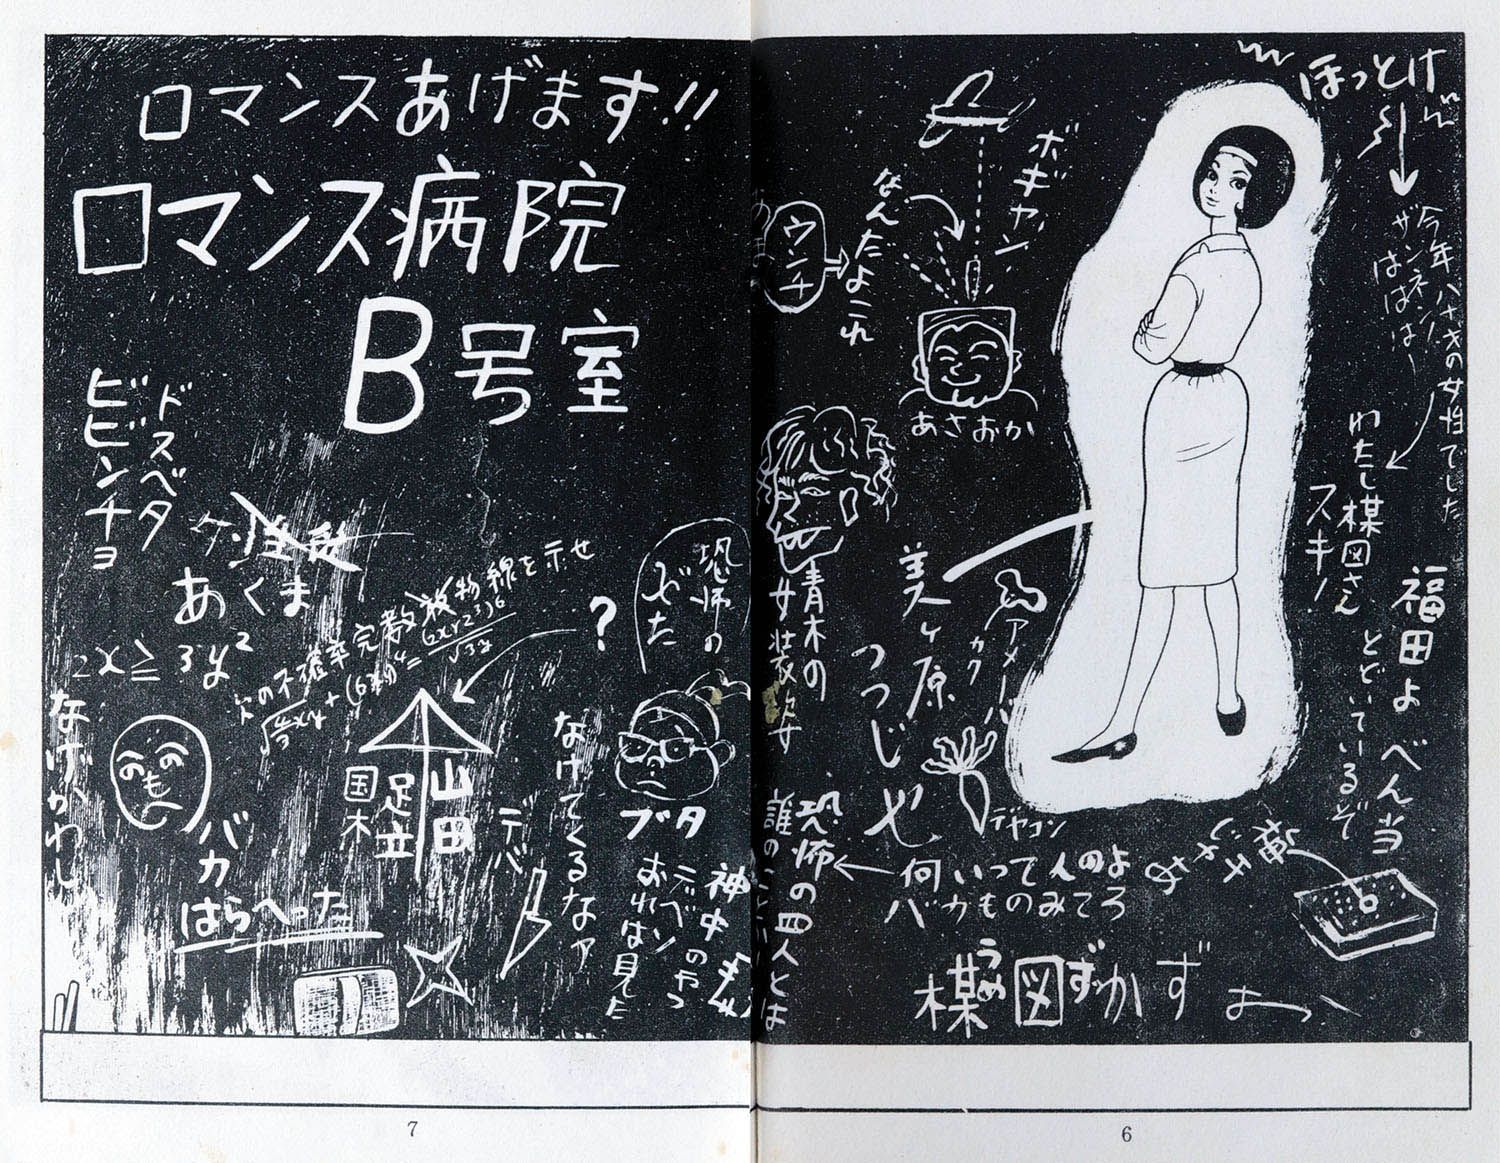 ほっとけ
今年ハナオの女性でした
ザンネン
はははー
わたし楳図さん
スキ!
福田よ べん当
とどいているぞ
ボギャン
なんだよこれ
ウンチ
あさおか
青木の
女装姿
美ヶ原
つつじや
アメーバ
カク
テヤコン
恐怖の四人とは
何いって人のよ
バカものみてろ
楳図かずお
うめ ず
ロマンスあげます!!
ロマンス病院
B号室
ドスベタ
ビビンチョ
あくま
2x≧3y²
次の不 完 放物線を示せ
?
恐怖の
ぞた
なげかわし
へのへのもへ
バカ
はらへった
山田
足立
国木
デバ
なけてくるなァ
ブタ
神中
デベソのやつ
おれは見た
7
6